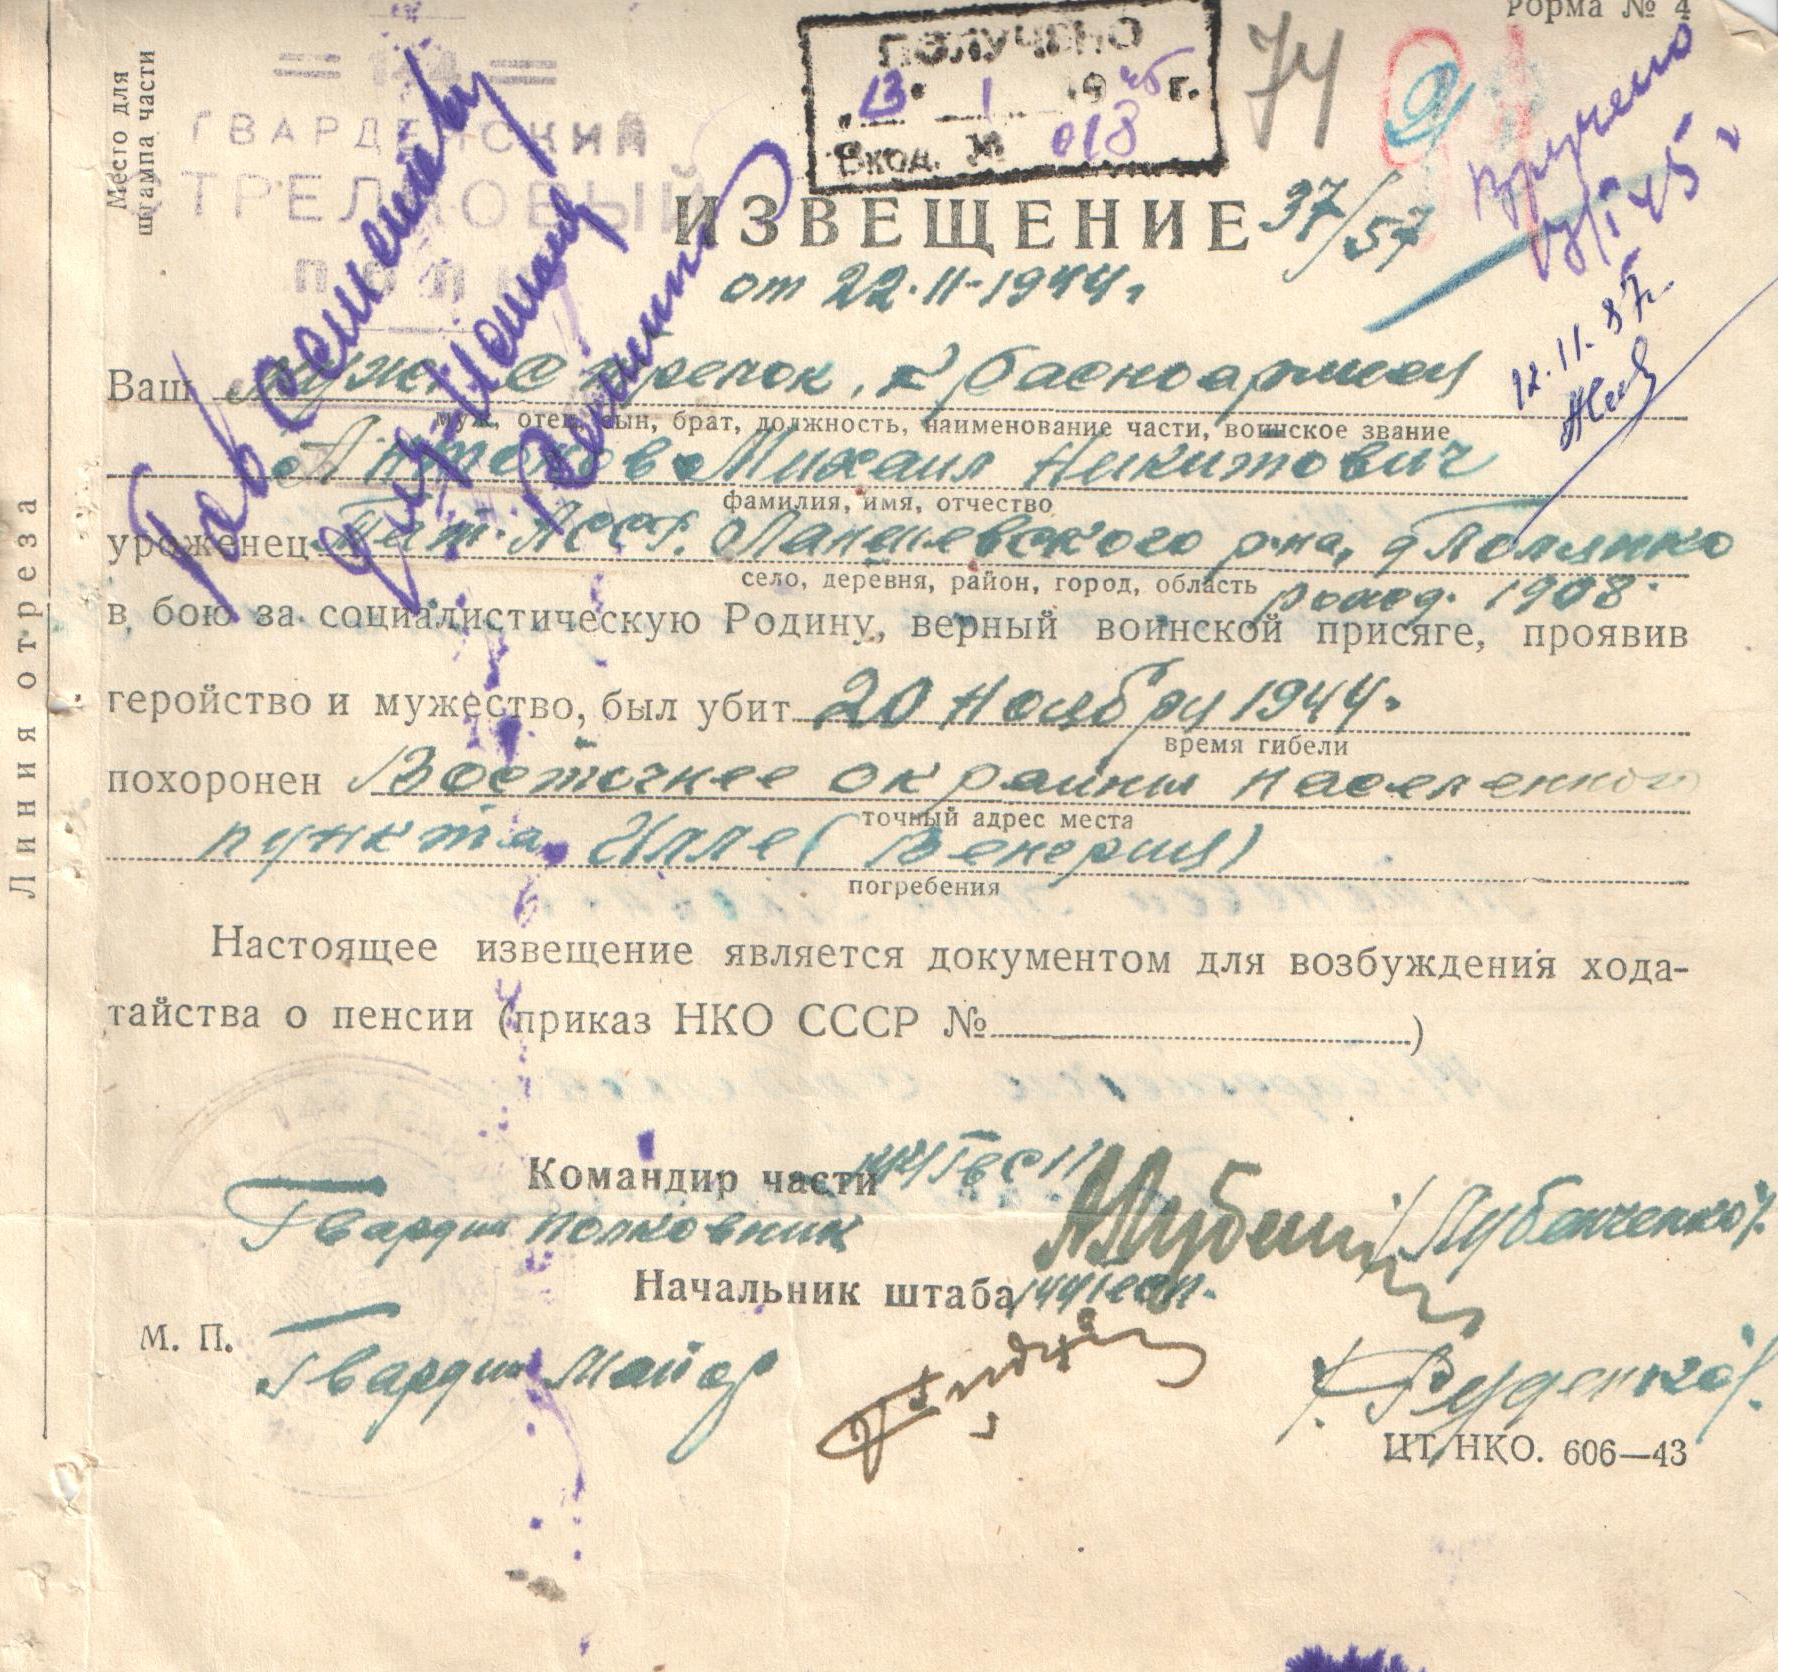 Форма № 4
Место для
штампа части
144
ГВАРДЕЙСКИЙ
СТРЕЛКОВЫЙ
ПОЛК
ПОЛУЧЕНО
13. 1 1945 г.
Вход. № 018
74
Вручено
12.11.87г.
ИЗВЕЩЕНИЕ 37/57
от 22.11.1944г.
Ваш муж стрелок, красноармеец
муж, отец, сын, брат, должность, наименование части, воинское звание
Антонов Михаил Никитович
фамилия, имя, отчество
уроженец Тат. АССР. Лаишевского р-на, д Полянко
село, деревня, район, город, область
рожд. 1908.
в бою за социалистическую Родину, верный воинской присяге, проявив
геройство и мужество, был убит 20 Ноября 1944г.
время гибели
похоронен Восточнее окраины населенного
точный адрес места
пункта Илле (Венгрия)
погребения
Настоящее извещение является документом для возбуждения хода-
тайства о пенсии (приказ НКО СССР № )
Командир части 144 ГвСП
Гвардии полковник /Лубенченко/
Начальник штаба 144 гвсп.
М. П.
Гвардии Майор /Руденко/.
ЦТ, НКО. 606—43
Линия отреза